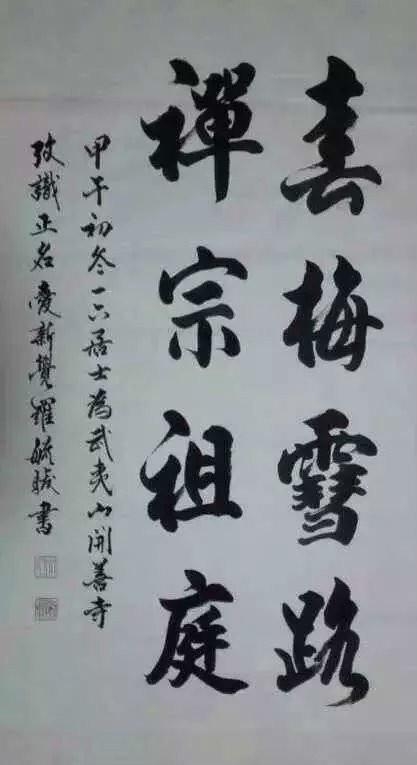 春梅雪路
禪宗祖庭
甲午初冬一六居士為武夷山開善寺
攷識正名愛新覺羅毓書